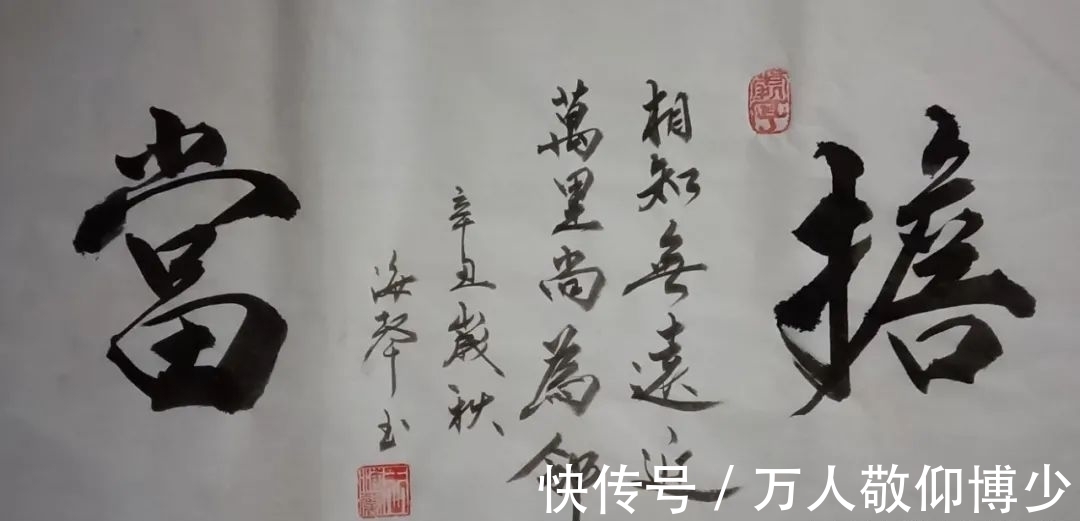 擔
相知無遠近
萬里尚為
辛丑歲秋
海
當
快传号 / 万人敬仰博少